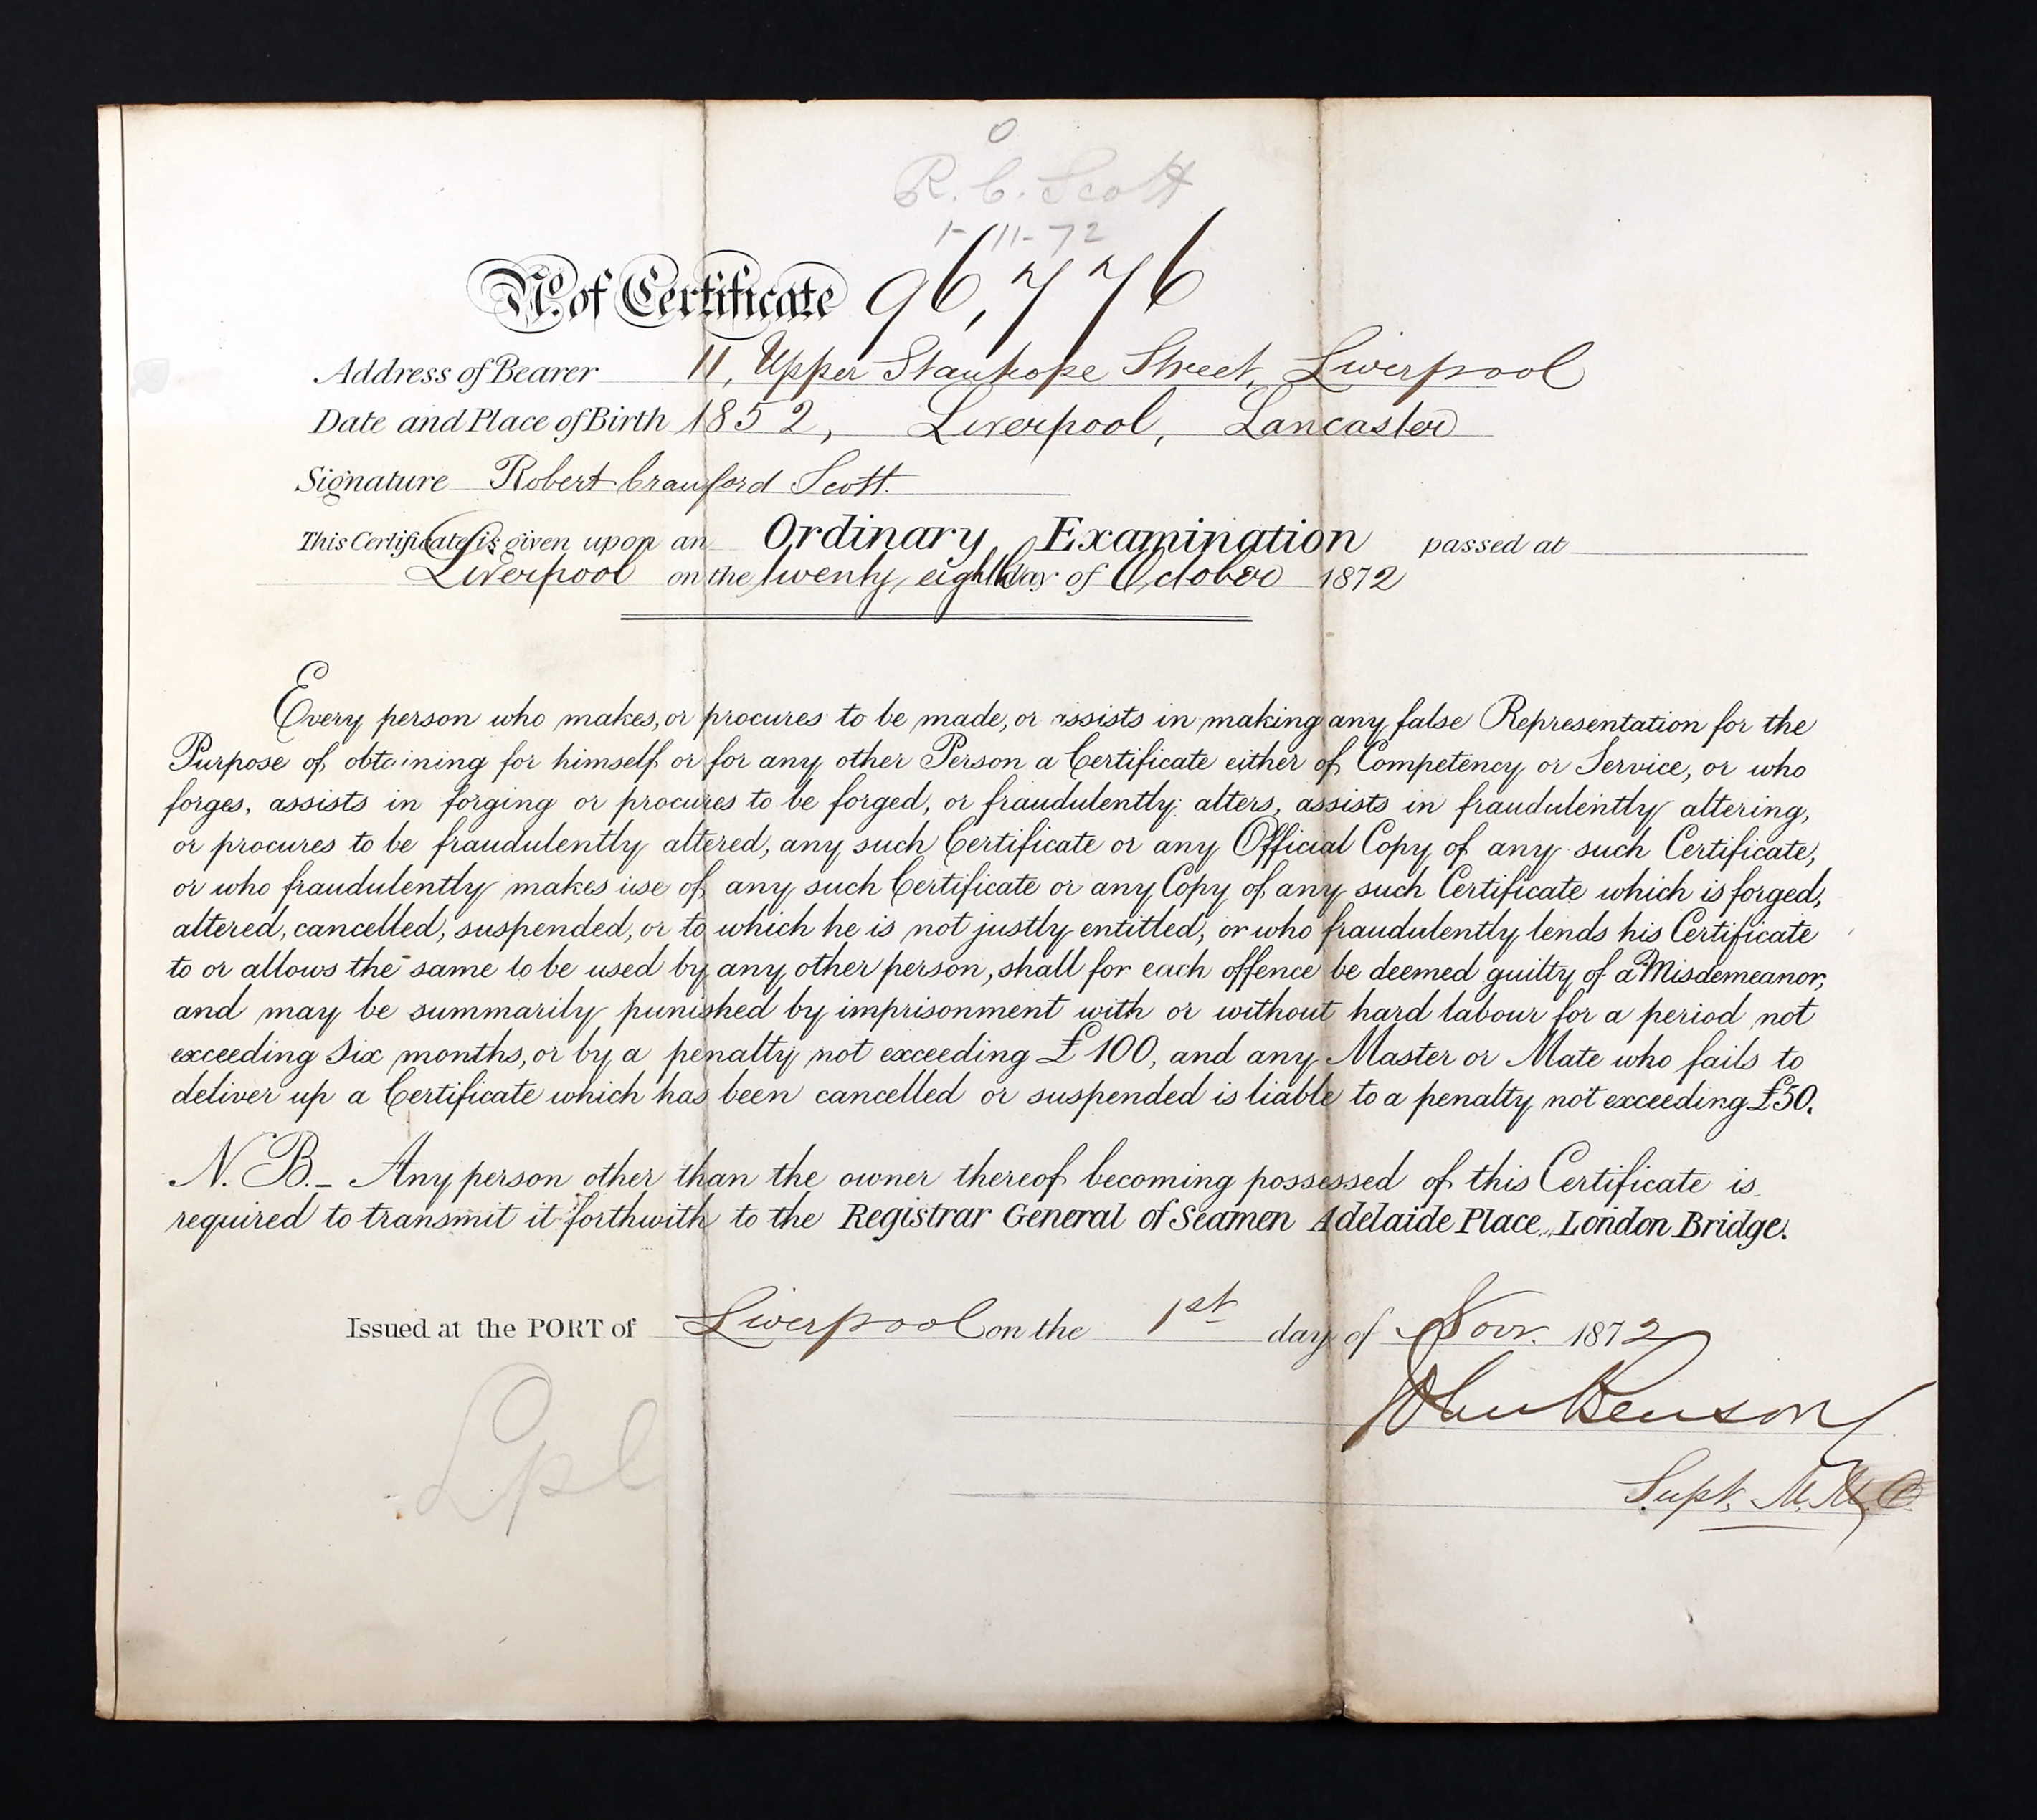 O
R. C. Scott
1-11-72
No. of Certificate 96,776
Address of Bearer 11, Upper Stanhope Street, Liverpool
Date and Place of Birth 1852, Liverpool, Lancaster
Signature Robert Crauford Scott.
This Certificate is given upon an Ordinary Examination passed at
Liverpool on the twenty eighth day of October 1872
Every person who makes, or procures to be made, or assists in making any false Representation for the
Purpose of obtaining for himself or for any other Person a Certificate either of Competency or Service, or who
forges, assists in forging or procures to be forged, or fraudulently alters, assists in fraudulently altering,
or procures to be fraudulently altered, any such Certificate or any Official Copy of any such Certificate,
or who fraudulently makes use of any such Certificate or any Copy of any such Certificate which is forged,
altered, cancelled, suspended, or to which he is not justly entitled, or who fraudulently lends his Certificate
to or allows the same to be used by any other person, shall for each offence be deemed guilty of a Misdemeanor,
and may be summarily punished by imprisonment with or without hard labour for a period not
exceeding Six months, or by a penalty not exceeding £100, and any Master or Mate who fails to
deliver up a Certificate which has been cancelled or suspended is liable to a penalty not exceeding £50.
N.B.- Any person other than the owner thereof becoming possessed of this Certificate is
required to transmit it forthwith to the Registrar General of Seamen Adelaide Place, London Bridge.
Issued at the PORT of Liverpool on the 1st day of Novr. 1872
John Benson
Supt. M.M.O.
Lpl